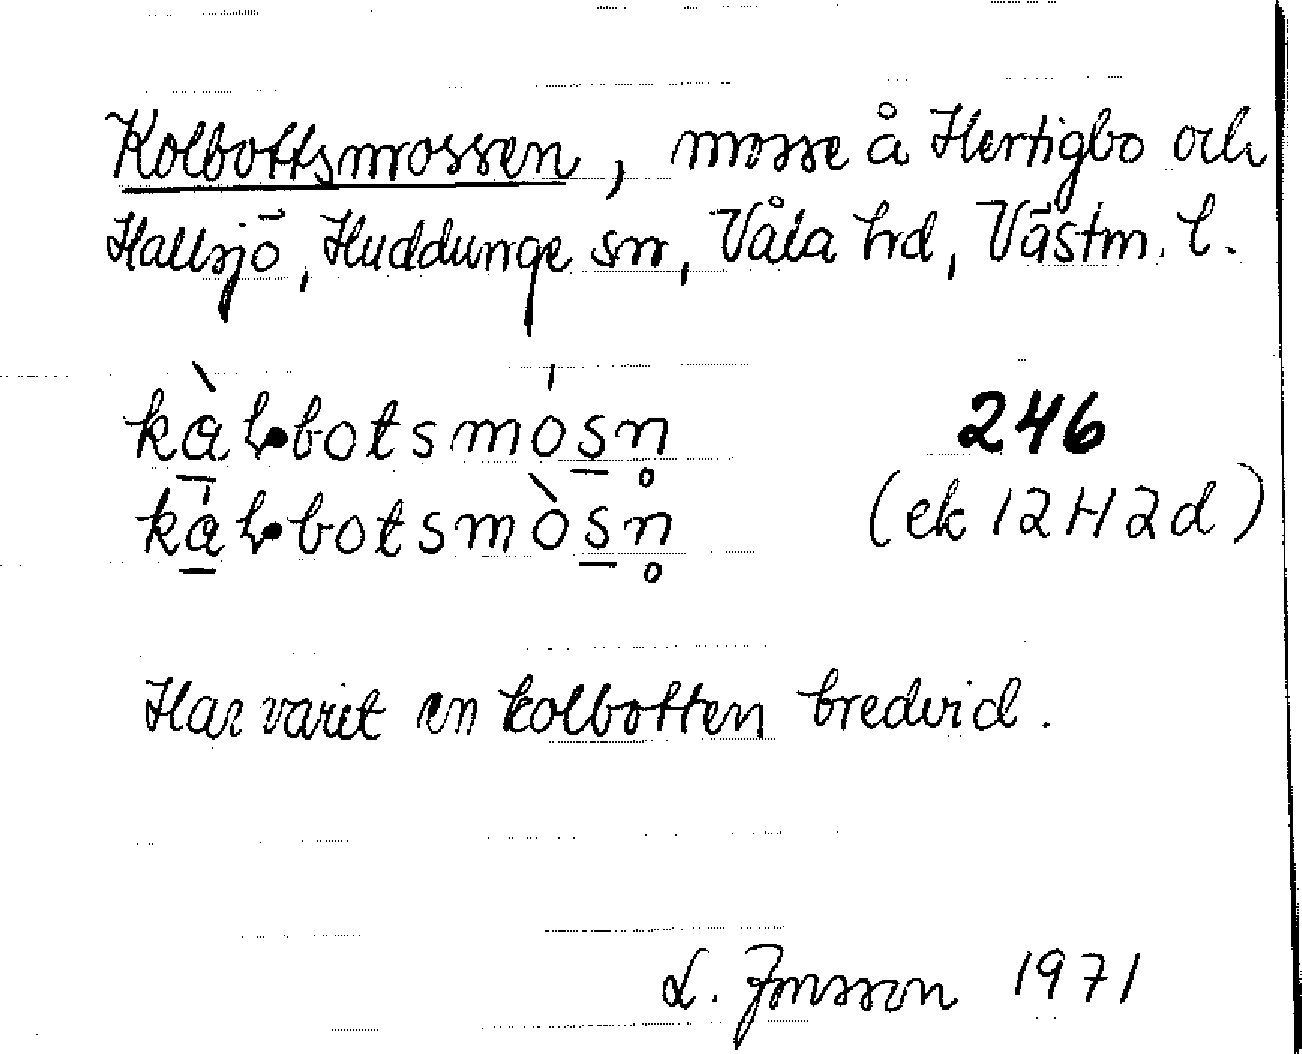 Kolbottsmossen, mosse å Hertigbo och
Hallsjö, Huddunge sn, Våla hrd, Västm. l.
kàl·botsmósn̥ 246
kál·botsmòsn̥ (ek 12H2d)
Har varit en kolbotten bredvid.
L. Jonsson 1971